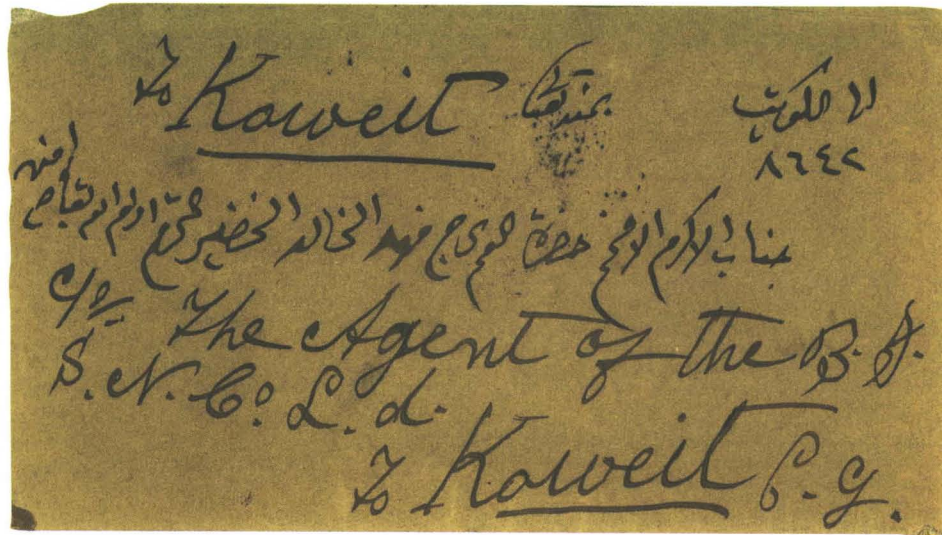 To Koweit بمنه تعالى الى الكويت
٨٦٤٢
جناب الاكرم الافخم حضرة فهد الخالد الخضير المحترم
C/o The Agent of the B. I.
S. N. Co. L. d.
To Koweit P. G.